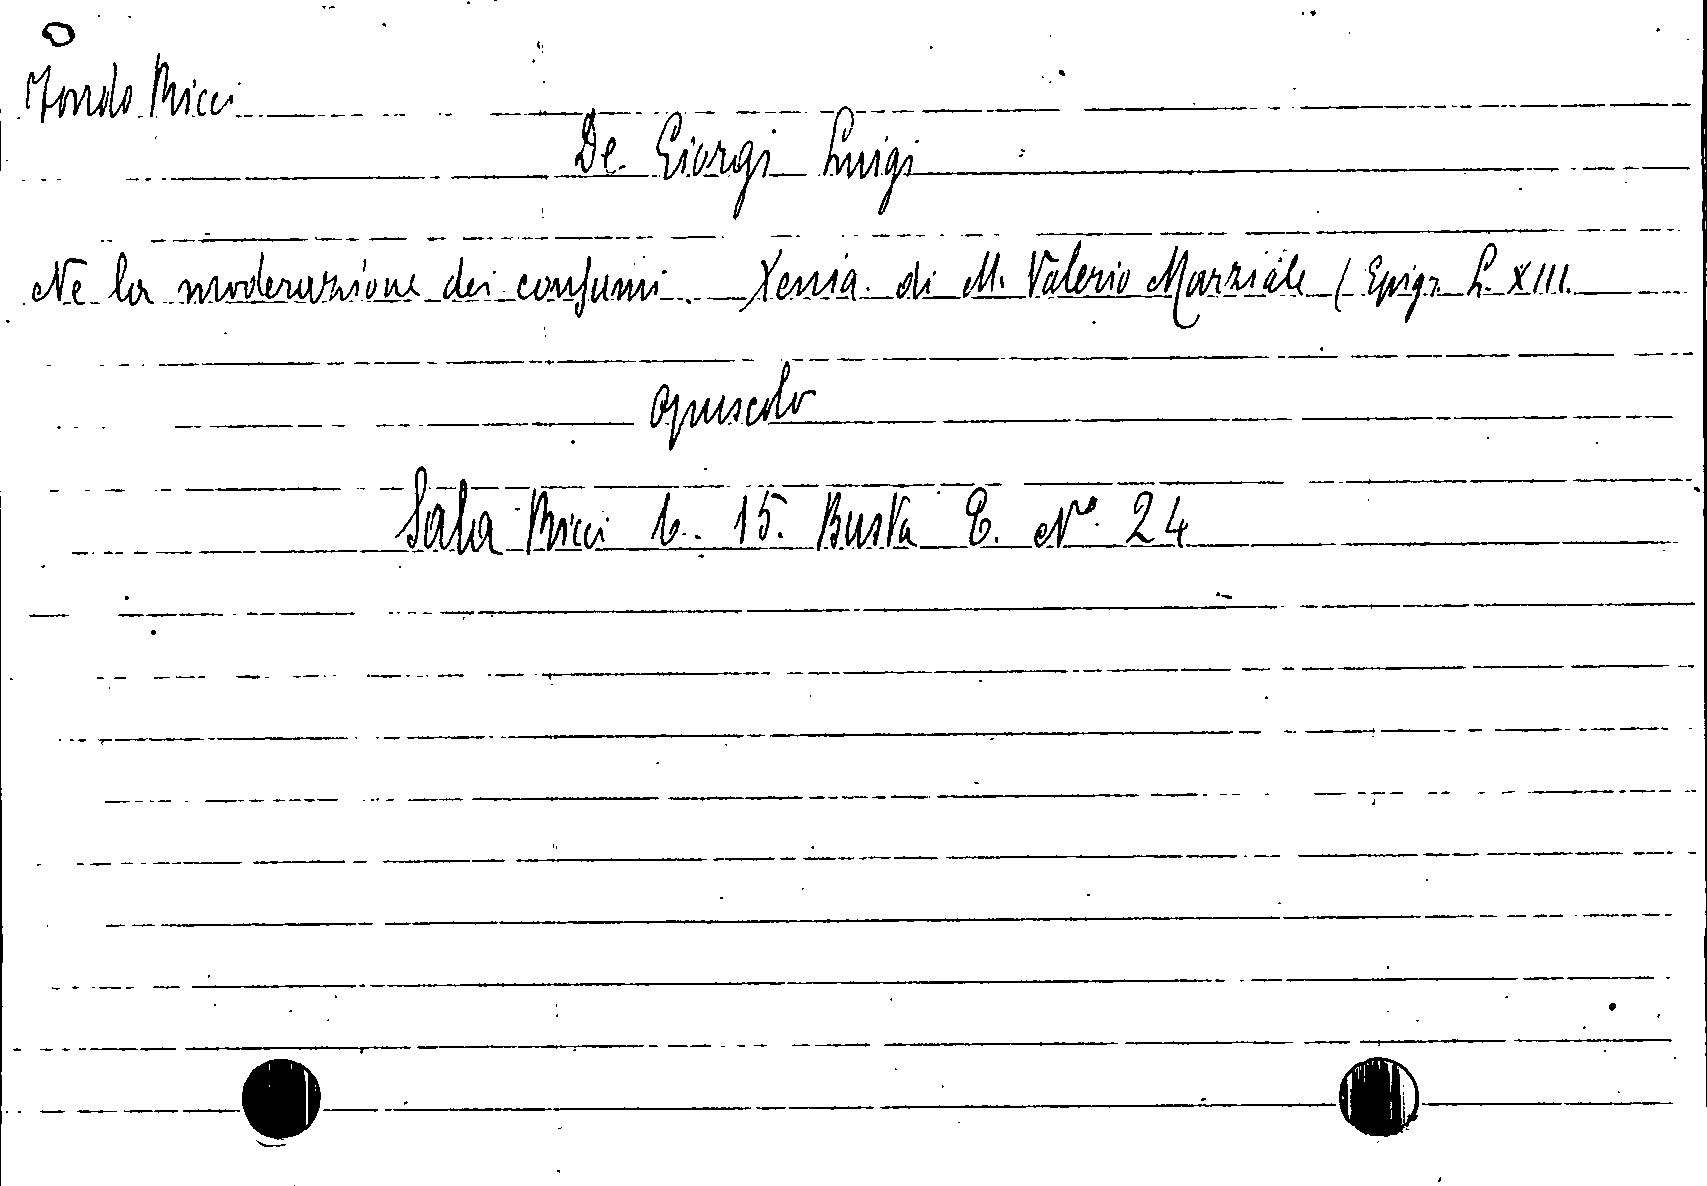 Fondo Ricci
De Giorgi Luigi
Ne la moderazione dei consumi. Xenia di M. Valerio Marziale (Epigr. L. XIII.
opuscolo
Sala Ricci b. 15. Busta E. N° 24